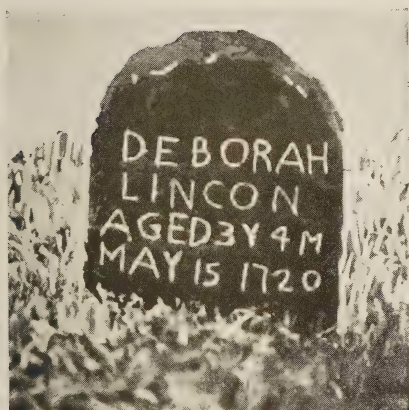 DEBORAH
LINCON
AGED 3 Y 4 M
MAY 15 1720